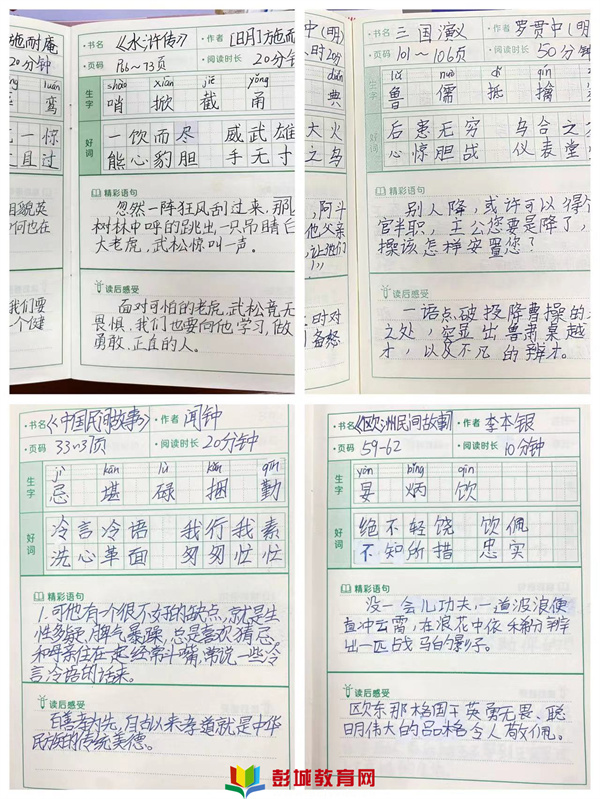 施耐庵
20分钟
luán
鸾
一惊
且过
相貌英
何也在
我们要
个健
·书名《水浒传》 ·作者 [明]施耐
·页码 P66~73页 ·阅读时长 20分钟
生字
shào xiān jié yǒng
哨 掀 截 甬
好词
一饮而尽 威武雄
熊心豹胆 手无寸
精彩语句
忽然一阵狂风刮过来,那
树林中呼的跳出,一只吊睛白
大老虎,武松惊叫一声。
读后感受
面对可怕的老虎,武松竟无
畏惧,我们也要向他学习,做
勇敢、正直的人。
中(明)
时20分
diǎn
典
大火
之鸟
,阿斗
他父亲
,让他们
时对
备怒
·书名 三国演义 ·作者 罗贯中(明
·页码 101~106页 ·阅读时长 50分钟
生字
lǔ nuò dǐ qín
鲁 儒 抵 擒
好词
后患无穷 乌合之
心惊胆战 仪表堂
精彩语句
别人降,或许可以得个
官半职,主公您要是降了,
操该怎样安置您?
读后感受
一语点破投降曹操的
之处,突显出鲁肃卓越
才,以及不凡的辩才。
·书名《中国民间故事》 ·作者 闻钟
·页码 33~37页 ·阅读时长 20分钟
生字
jì kān lù kǔn qín
忌 堪 碌 捆 勤
好词
冷言冷语 我行我素
洗心革面 匆匆忙忙
精彩语句
1.可他有一个很不好的缺点,就是生
性多疑,脾气暴躁,总是喜欢猜忌,
和母亲住在一起经常斗嘴,常说一些冷
言冷语的话来。
读后感受
百善孝为先,自古以来孝道就是中华
民族的传统美德。
·书名《欧洲民间故事》 ·作者 李本银
·页码 59-62 ·阅读时长 10分钟
生字
yàn bǐng qīn
宴 炳 钦
好词
绝不轻饶 钦佩
不知所措 忠实
精彩语句
没一会儿功夫,一道波浪便
直冲云霄,在浪花中依稀分辨
出一匹战马的影子。
读后感受
欧东那格国王英勇无畏、聪
明伟大的品格令人敬佩。
彭城教育网